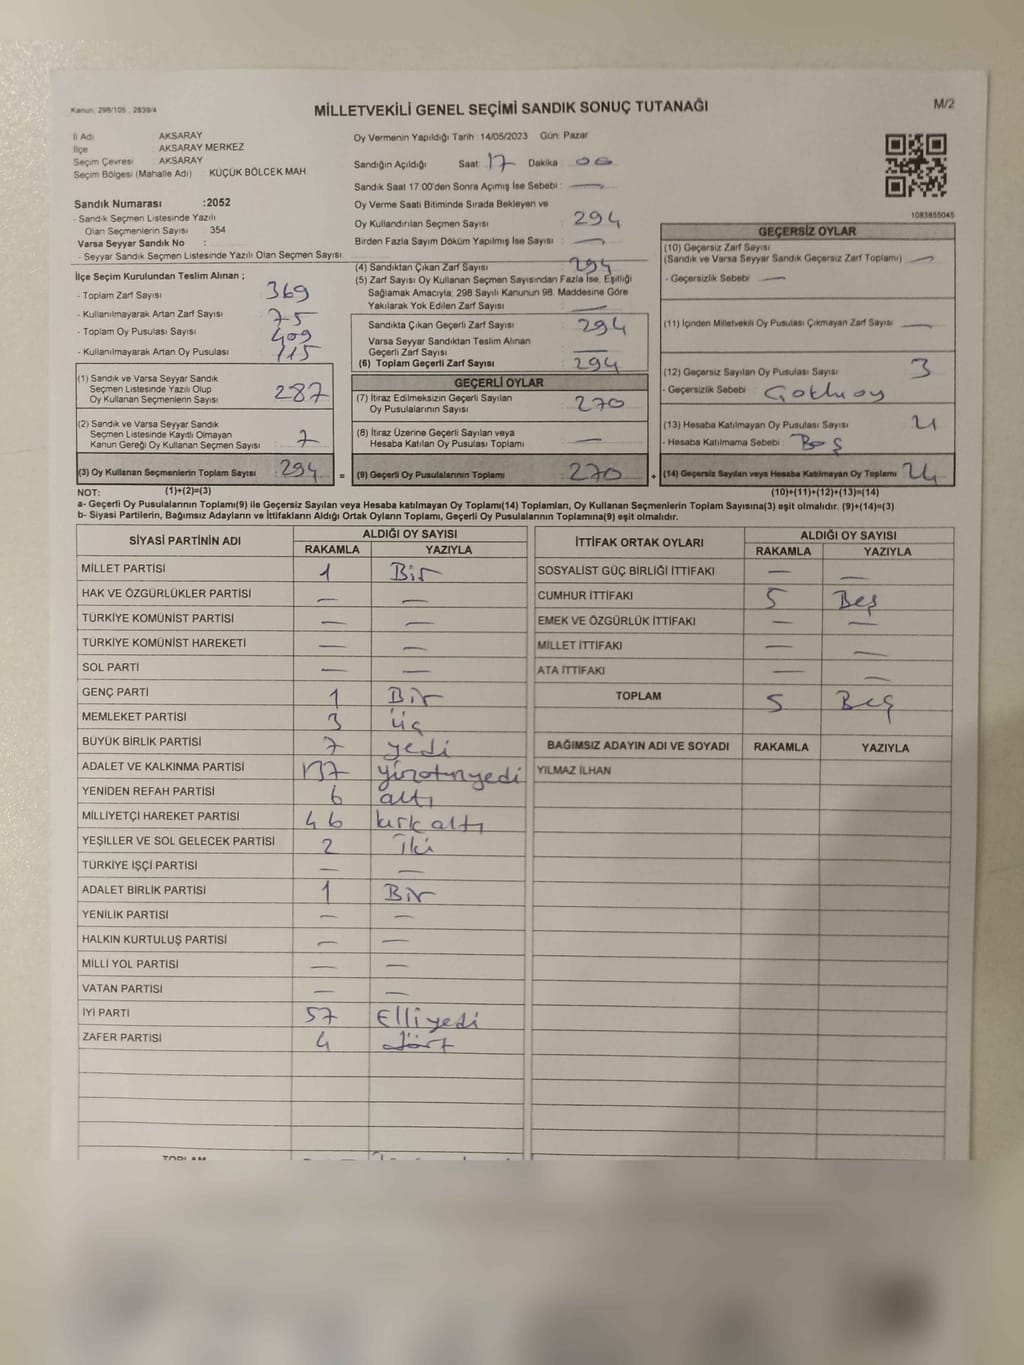 Kanun: 298/105 , 2839/4
MİLLETVEKİLİ GENEL SEÇİMİ SANDIK SONUÇ TUTANAĞI
M/2
İl Adı AKSARAY
İlçe AKSARAY MERKEZ
Seçim Çevresi AKSARAY
Seçim Bölgesi (Mahalle Adı) KÜÇÜK BÖLCEK MAH.
Sandık Numarası :2052
- Sandık Seçmen Listesinde Yazılı
Olan Seçmenlerin Sayısı : 354
Varsa Seyyar Sandık No :
- Seyyar Sandık Seçmen Listesinde Yazılı Olan Seçmen Sayısı :
Oy Vermenin Yapıldığı Tarih : 14/05/2023 Gün: Pazar
Sandığın Açıldığı Saat: 17 Dakika : 00
Sandık Saat 17:00'den Sonra Açımış İse Sebebi : —
Oy Verme Saati Bitiminde Sırada Bekleyen ve
Oy Kullandırılan Seçmen Sayısı : 294
Birden Fazla Sayım Döküm Yapılmış İse Sayısı : —
1083855045
İlçe Seçim Kurulundan Teslim Alınan ;
- Toplam Zarf Sayısı : 369
- Kullanılmayarak Artan Zarf Sayısı : 75
- Toplam Oy Pusulası Sayısı : 409
- Kullanılmayarak Artan Oy Pusulası : 115
(1) Sandık ve Varsa Seyyar Sandık
Seçmen Listesinde Yazılı Olup
Oy Kullanan Seçmenlerin Sayısı : 287
(2) Sandık ve Varsa Seyyar Sandık
Seçmen Listesinde Kayıtlı Olmayan
Kanun Gereği Oy Kullanan Seçmen Sayısı : 7
(3) Oy Kullanan Seçmenlerin Toplam Sayısı : 294 =
(1)+(2)=(3)
(4) Sandıktan Çıkan Zarf Sayısı : 294
(5) Zarf Sayısı Oy Kullanan Seçmen Sayısından Fazla İse, Eşitliği
Sağlamak Amacıyla, 298 Sayılı Kanunun 98. Maddesine Göre
Yakılarak Yok Edilen Zarf Sayısı : —
Sandıkta Çıkan Geçerli Zarf Sayısı : 294
Varsa Seyyar Sandıktan Teslim Alınan
Geçerli Zarf Sayısı : —
(6) Toplam Geçerli Zarf Sayısı : 294
GEÇERLİ OYLAR
(7) İtiraz Edilmeksizin Geçerli Sayılan
Oy Pusulalarının Sayısı : 270
(8) İtiraz Üzerine Geçerli Sayılan veya
Hesaba Katılan Oy Pusulası Toplamı : —
(9) Geçerli Oy Pusulalarının Toplamı : 270 +
GEÇERSİZ OYLAR
(10) Geçersiz Zarf Sayısı
(Sandık ve Varsa Seyyar Sandık Geçersiz Zarf Toplamı) : —
- Geçersizlik Sebebi : —
(11) İçinden Milletvekili Oy Pusulası Çıkmayan Zarf Sayısı : —
(12) Geçersiz Sayılan Oy Pusulası Sayısı : 3
- Geçersizlik Sebebi :
(13) Hesaba Katılmayan Oy Pusulası Sayısı : 21
- Hesaba Katılmama Sebebi : Boş
(14) Geçersiz Sayılan veya Hesaba Katılmayan Oy Toplamı : 24
(10)+(11)+(12)+(13)=(14)
NOT:
a- Geçerli Oy Pusulalarının Toplamı(9) ile Geçersiz Sayılan veya Hesaba katılmayan Oy Toplamı(14) Toplamları, Oy Kullanan Seçmenlerin Toplam Sayısına(3) eşit olmalıdır. (9)+(14)=(3)
b- Siyasi Partilerin, Bağımsız Adayların ve İttifakların Aldığı Ortak Oyların Toplamı, Geçerli Oy Pusulalarının Toplamına(9) eşit olmalıdır.
SİYASİ PARTİNİN ADI ALDIĞI OY SAYISI
RAKAMLA YAZIYLA
MİLLET PARTİSİ 1 Bir
HAK VE ÖZGÜRLÜKLER PARTİSİ — —
TÜRKİYE KOMÜNİST PARTİSİ — —
TÜRKİYE KOMÜNİST HAREKETİ — —
SOL PARTİ — —
GENÇ PARTİ 1 Bir
MEMLEKET PARTİSİ 3 üç
BÜYÜK BİRLİK PARTİSİ 7 yedi
ADALET VE KALKINMA PARTİSİ 137 yüzotuzyedi
YENİDEN REFAH PARTİSİ 6 altı
MİLLİYETÇİ HAREKET PARTİSİ 46 kırkaltı
YEŞİLLER VE SOL GELECEK PARTİSİ 2 İki
TÜRKİYE İŞÇİ PARTİSİ — —
ADALET BİRLİK PARTİSİ 1 Bir
YENİLİK PARTİSİ — —
HALKIN KURTULUŞ PARTİSİ — —
MİLLİ YOL PARTİSİ — —
VATAN PARTİSİ — —
İYİ PARTİ 57 Elliyedi
ZAFER PARTİSİ 4 dört
TOPLAM
İTTİFAK ORTAK OYLARI ALDIĞI OY SAYISI
RAKAMLA YAZIYLA
SOSYALİST GÜÇ BİRLİĞİ İTTİFAKI — —
CUMHUR İTTİFAKI 5 Beş
EMEK VE ÖZGÜRLÜK İTTİFAKI — —
MİLLET İTTİFAKI — —
ATA İTTİFAKI — —
TOPLAM 5 Beş
BAĞIMSIZ ADAYIN ADI VE SOYADI RAKAMLA YAZIYLA
YILMAZ İLHAN